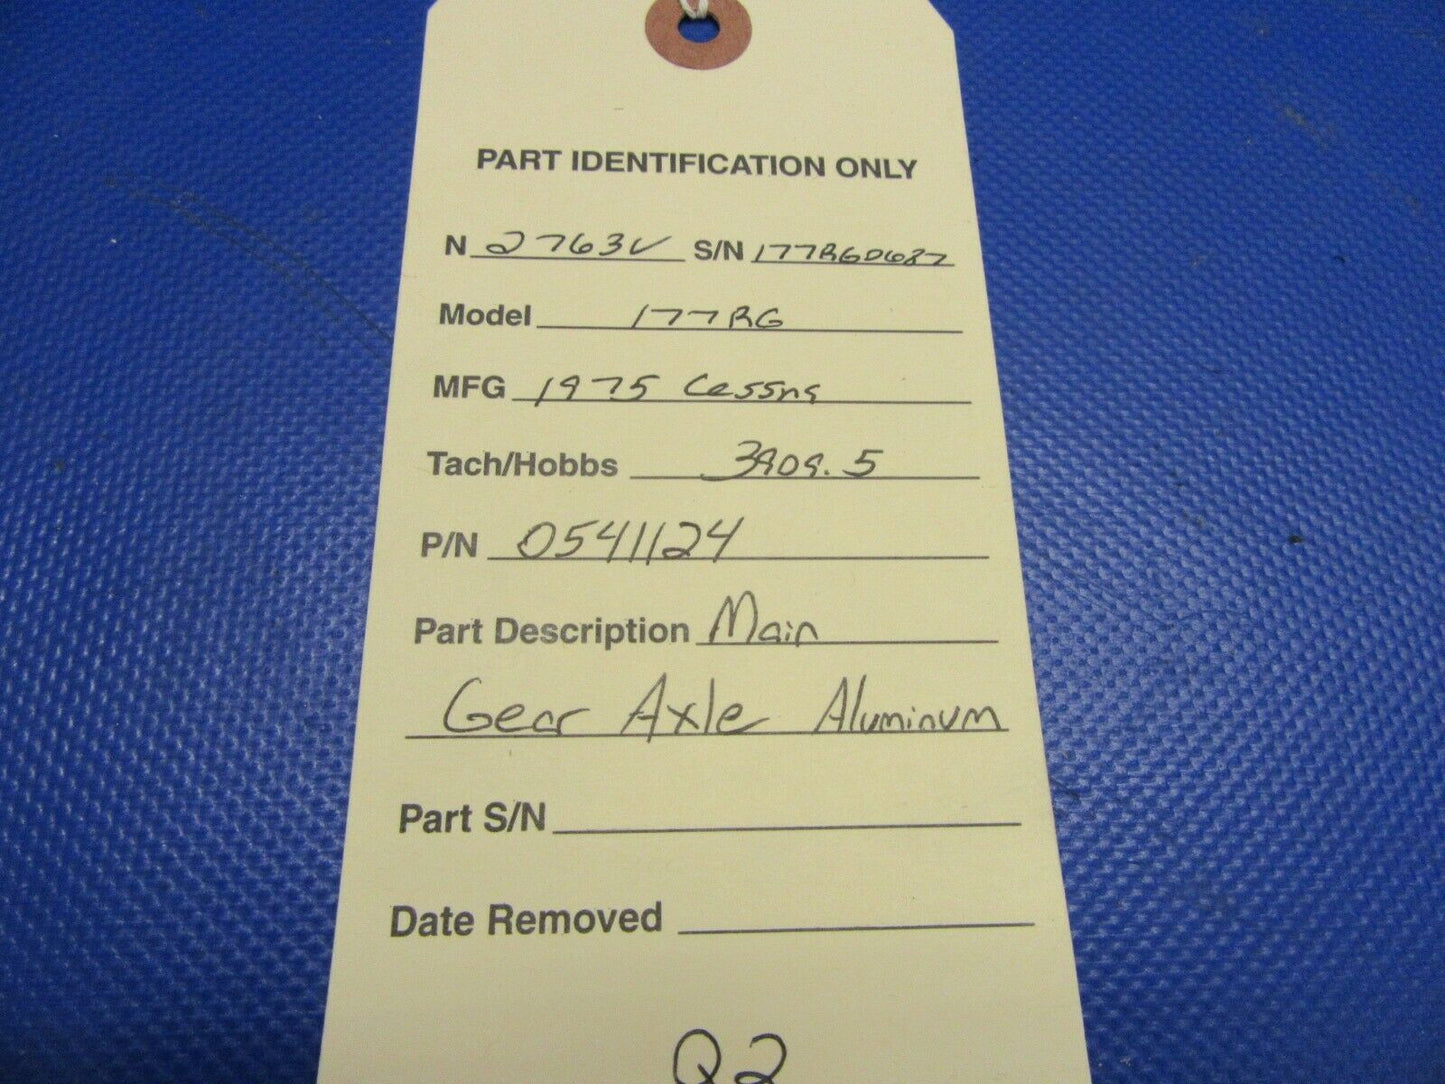 PART IDENTIFICATION ONLY
N 2763V S/N 177RG0687
Model 177RG
MFG 1975 Cessna
Tach/Hobbs 3909.5
P/N 0541124
Part Description Main
Gear Axle Aluminum
Part S/N
Date Removed
Q2